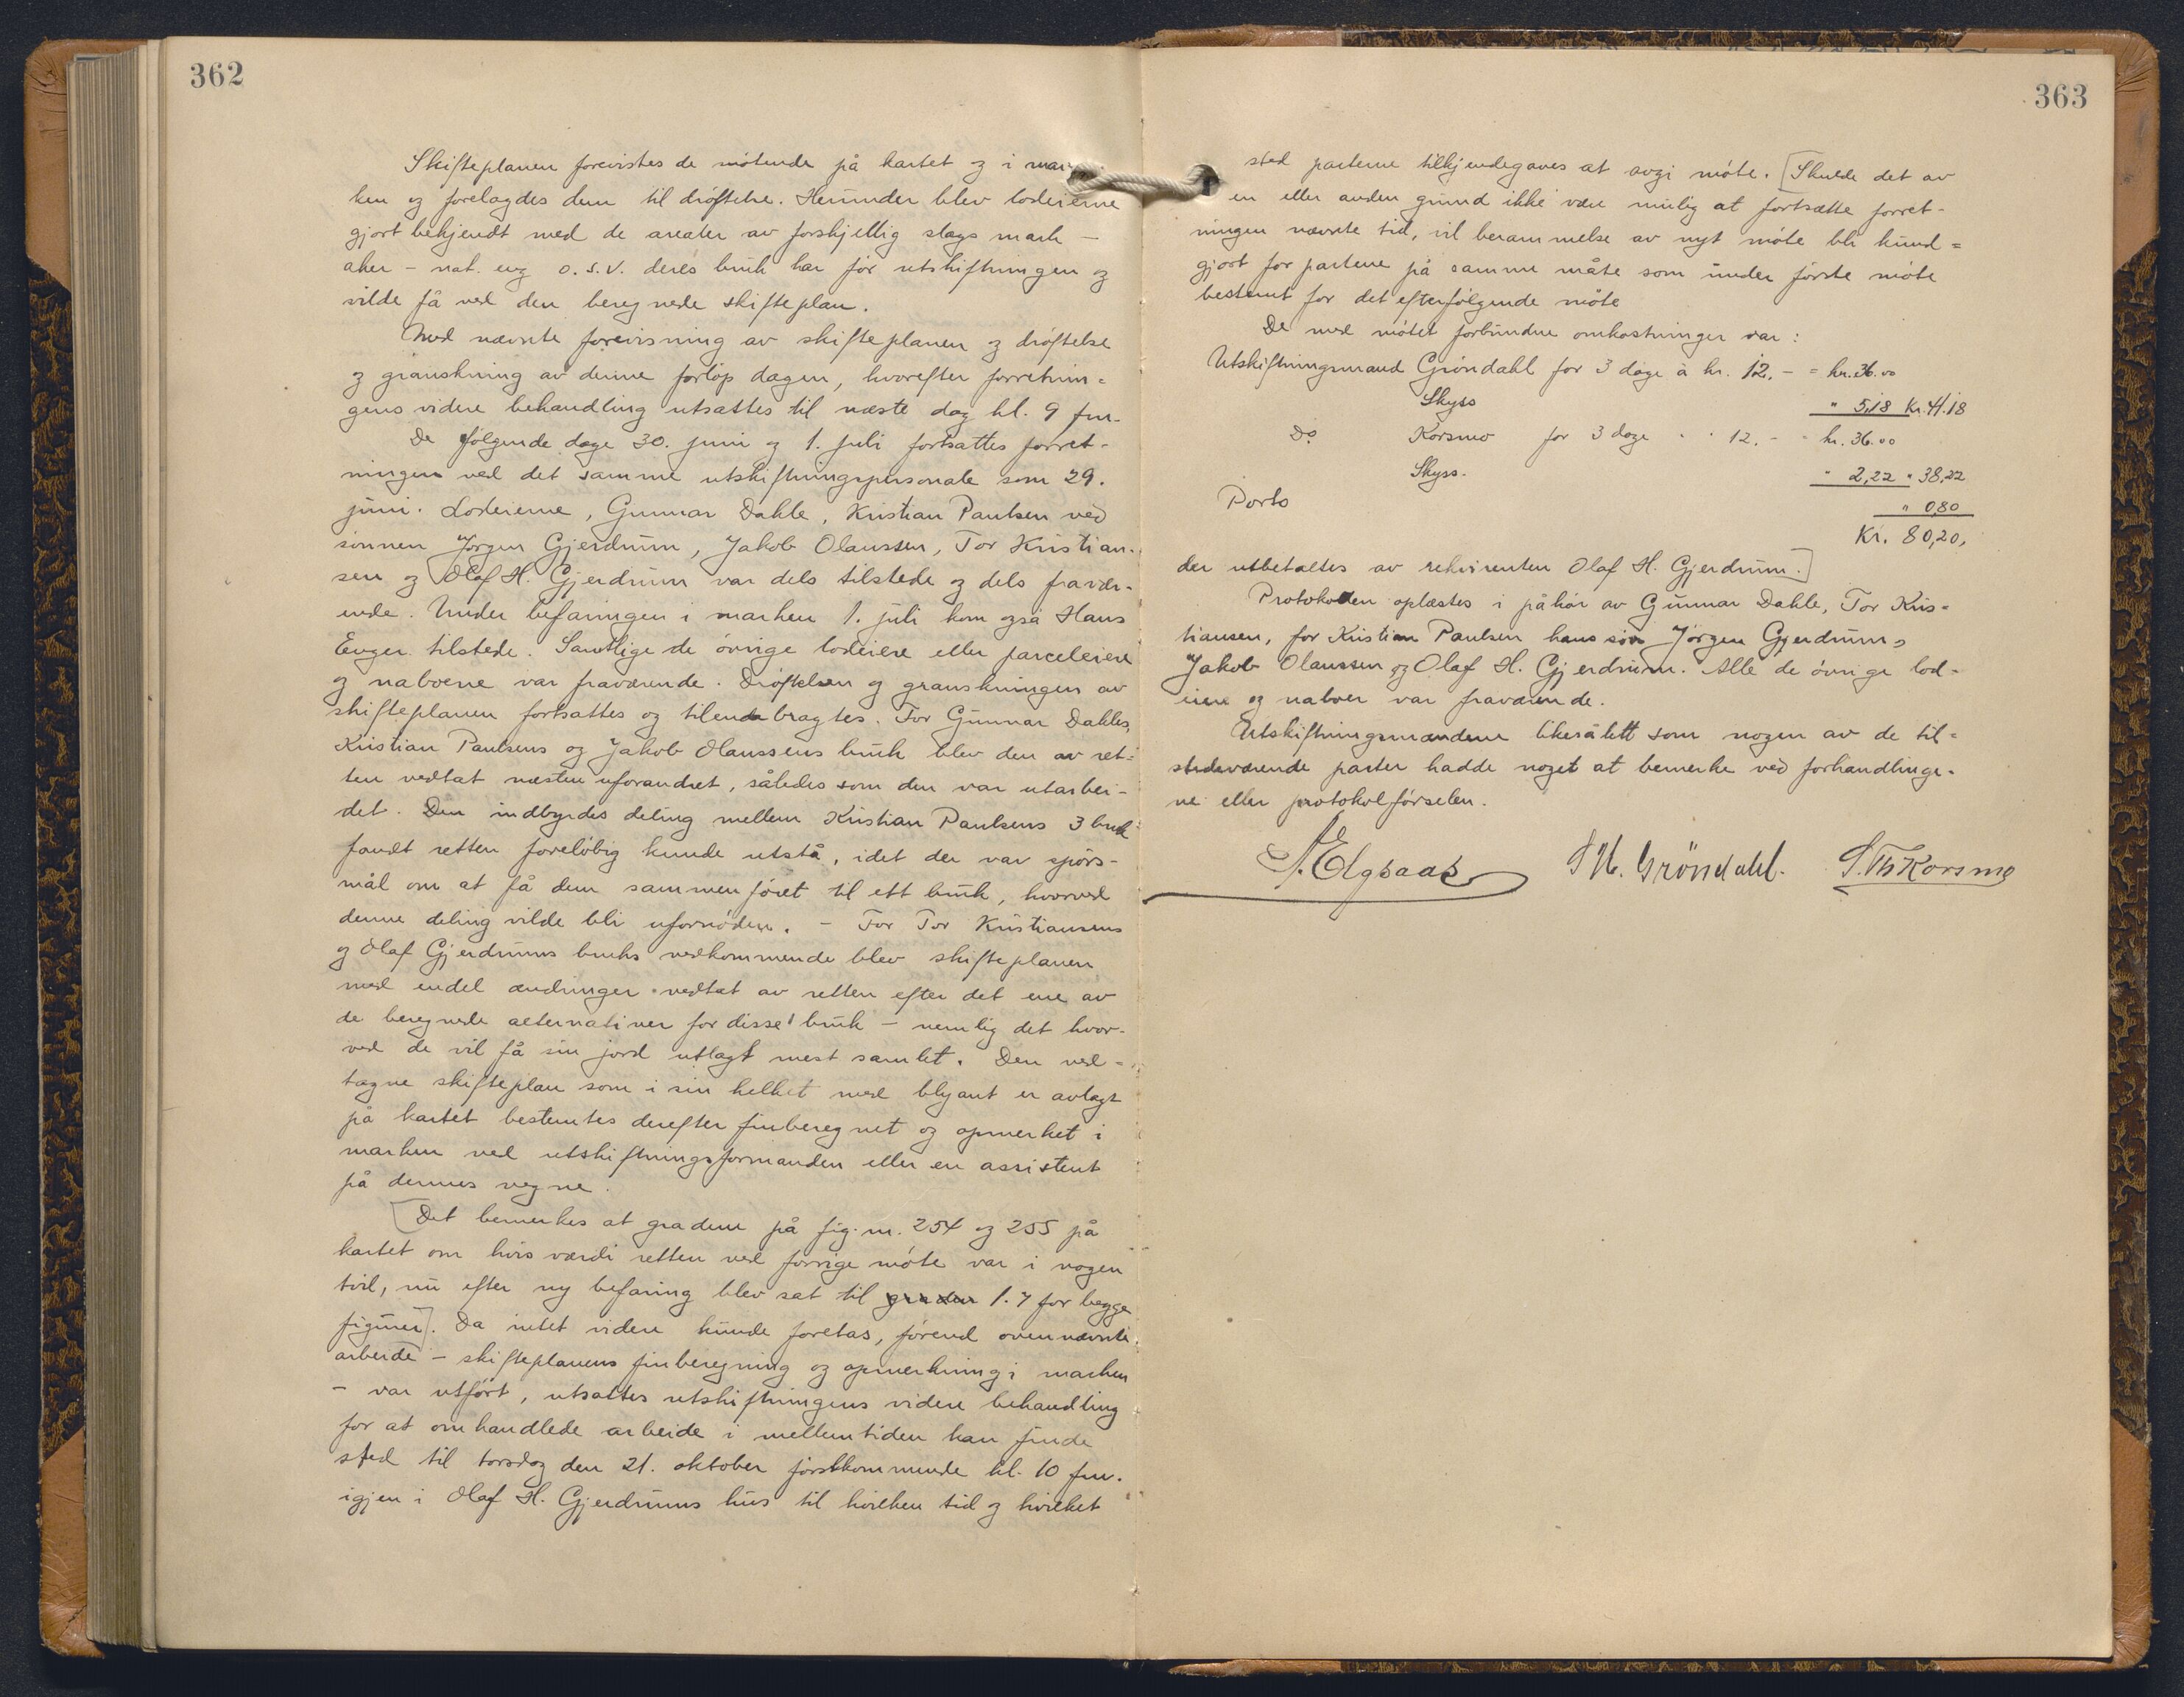 362
Skifteplanen forevistes de møtende på kartet og i mar-
ken og forelagdes dem til drøftelse. Herunder blev lodeierne
gjort bekjendt med de arealer av forskjellig slags mark -
aker - nat. eng o.s.v. deres bruk har før utskiftningen og
vilde få ved den beregnede skifteplan.
Med nævnte forevisning av skifteplanen og drøftelse
og granskning av denne forløp dagen, hvorefter forretnin-
gens videre behandling utsattes til næste dag kl. 9 fm.
De følgende dage 30. juni og 1. juli fortsattes forret-
ningen ved det samme utskiftningspersonale som 29.
juni. Lodeierne, Gunnar Dahle, Kristian Paulsen ved
sønnen Jørgen Gjerdrum, Jakob Olaussen, Tor Kristian-
sen og Olaf H. Gjerdrum var dels tilstede og dels fravær-
ende. Under befaringen i marken 1. juli kom også Hans
Enger tilstede. Samtlige de øvrige lodeiere eller parceleiere
og naboene var fraværende. Drøftelsen og granskningen av
skifteplanen fortsattes og tilendebragtes. For Gunnar Dahles,
Kristian Paulsens og Jakob Olaussens bruk blev den av ret-
ten vedtat næsten uforandret, således som den var utarbei-
det. Den indbyrdes deling mellem Kristian Paulsens 3 bruk
fandt retten foreløbig kunde utstå, idet der var spørs-
mål om at få dem sammenføiet til ett bruk, hvorved
denne deling vilde bli ufornøden. - For Tor Kristiansens
og Olaf Gjerdrums bruks vedkommende blev skifteplanen
med endel ændringer vedtat av retten efter det ene av
de beregnede alternativer for disse bruk - nemlig det hvor-
ved de vil få sin jord utlagt mest samlet. Den ved-
tagne skifteplan som i sin helhet med blyant er avlagt
på kartet bestemtes derefter finberegnet og opmerket i
marken ved utskiftningsformanden eller en assistent
på dennes vegne.
[Det bemerkes at graden på fig. nr. 254 og 255 på
kartet om hvis værdi retten ved forrige møte var i nogen
tvil, nu efter ny befaring blev sat til graden 1.7 for begge
figurer]. Da intet videre kunde foretas, førend ovennævnte
arbeide - skifteplanens finberegning og opmerkning i marken
- var utført, utsattes utskiftningens videre behandling
for at omhandlede arbeide i mellemtiden kan finde
sted til torsdag den 21. oktober førstkommende kl. 10 fm.
igjen i Olaf H. Gjerdrums hus til hvilken tid og hvilket
363
sted parterne tilkjendegaves at avgi møte. [Skulde det av
en eller anden grund ikke være mulig at fortsætte forret-
ningen nævnte tid, vil berammelse av nyt møte bli kund-
gjort for partene på samme måte som under første møte
bestemt for det efterfølgende møte
De med møtet forbundne omkostninger var:
Utskiftningsmand Grøndahl for 3 dage à kr. 12.- = kr. 36.00
Skyss " 5,18 Kr. 41.18
Do Korsmo for 3 dage " " 12.- " kr. 36.00
Skyss. " 2,22 " 38,22
Porto " 0,80
Kr. 80,20,
der utbetaltes av rekvirenten Olaf H. Gjerdrum.]
Protokollen oplæstes i påhør av Gunnar Dahle, Tor Kris-
tiansen, for Kristian Paulsen hans søn Jørgen Gjerdrum,
Jakob Olaussen og Olaf H. Gjerdrum. Alle de øvrige lod-
eiere og naboer var fraværende.
Utskiftningsmændene likesålitt som nogen av de til-
stedeværende parter hadde noget at bemerke ved forhandlinge-
ne eller protokolførselen.
A. Elgsaas S. M. Gröndahl. S. Th Korsmo